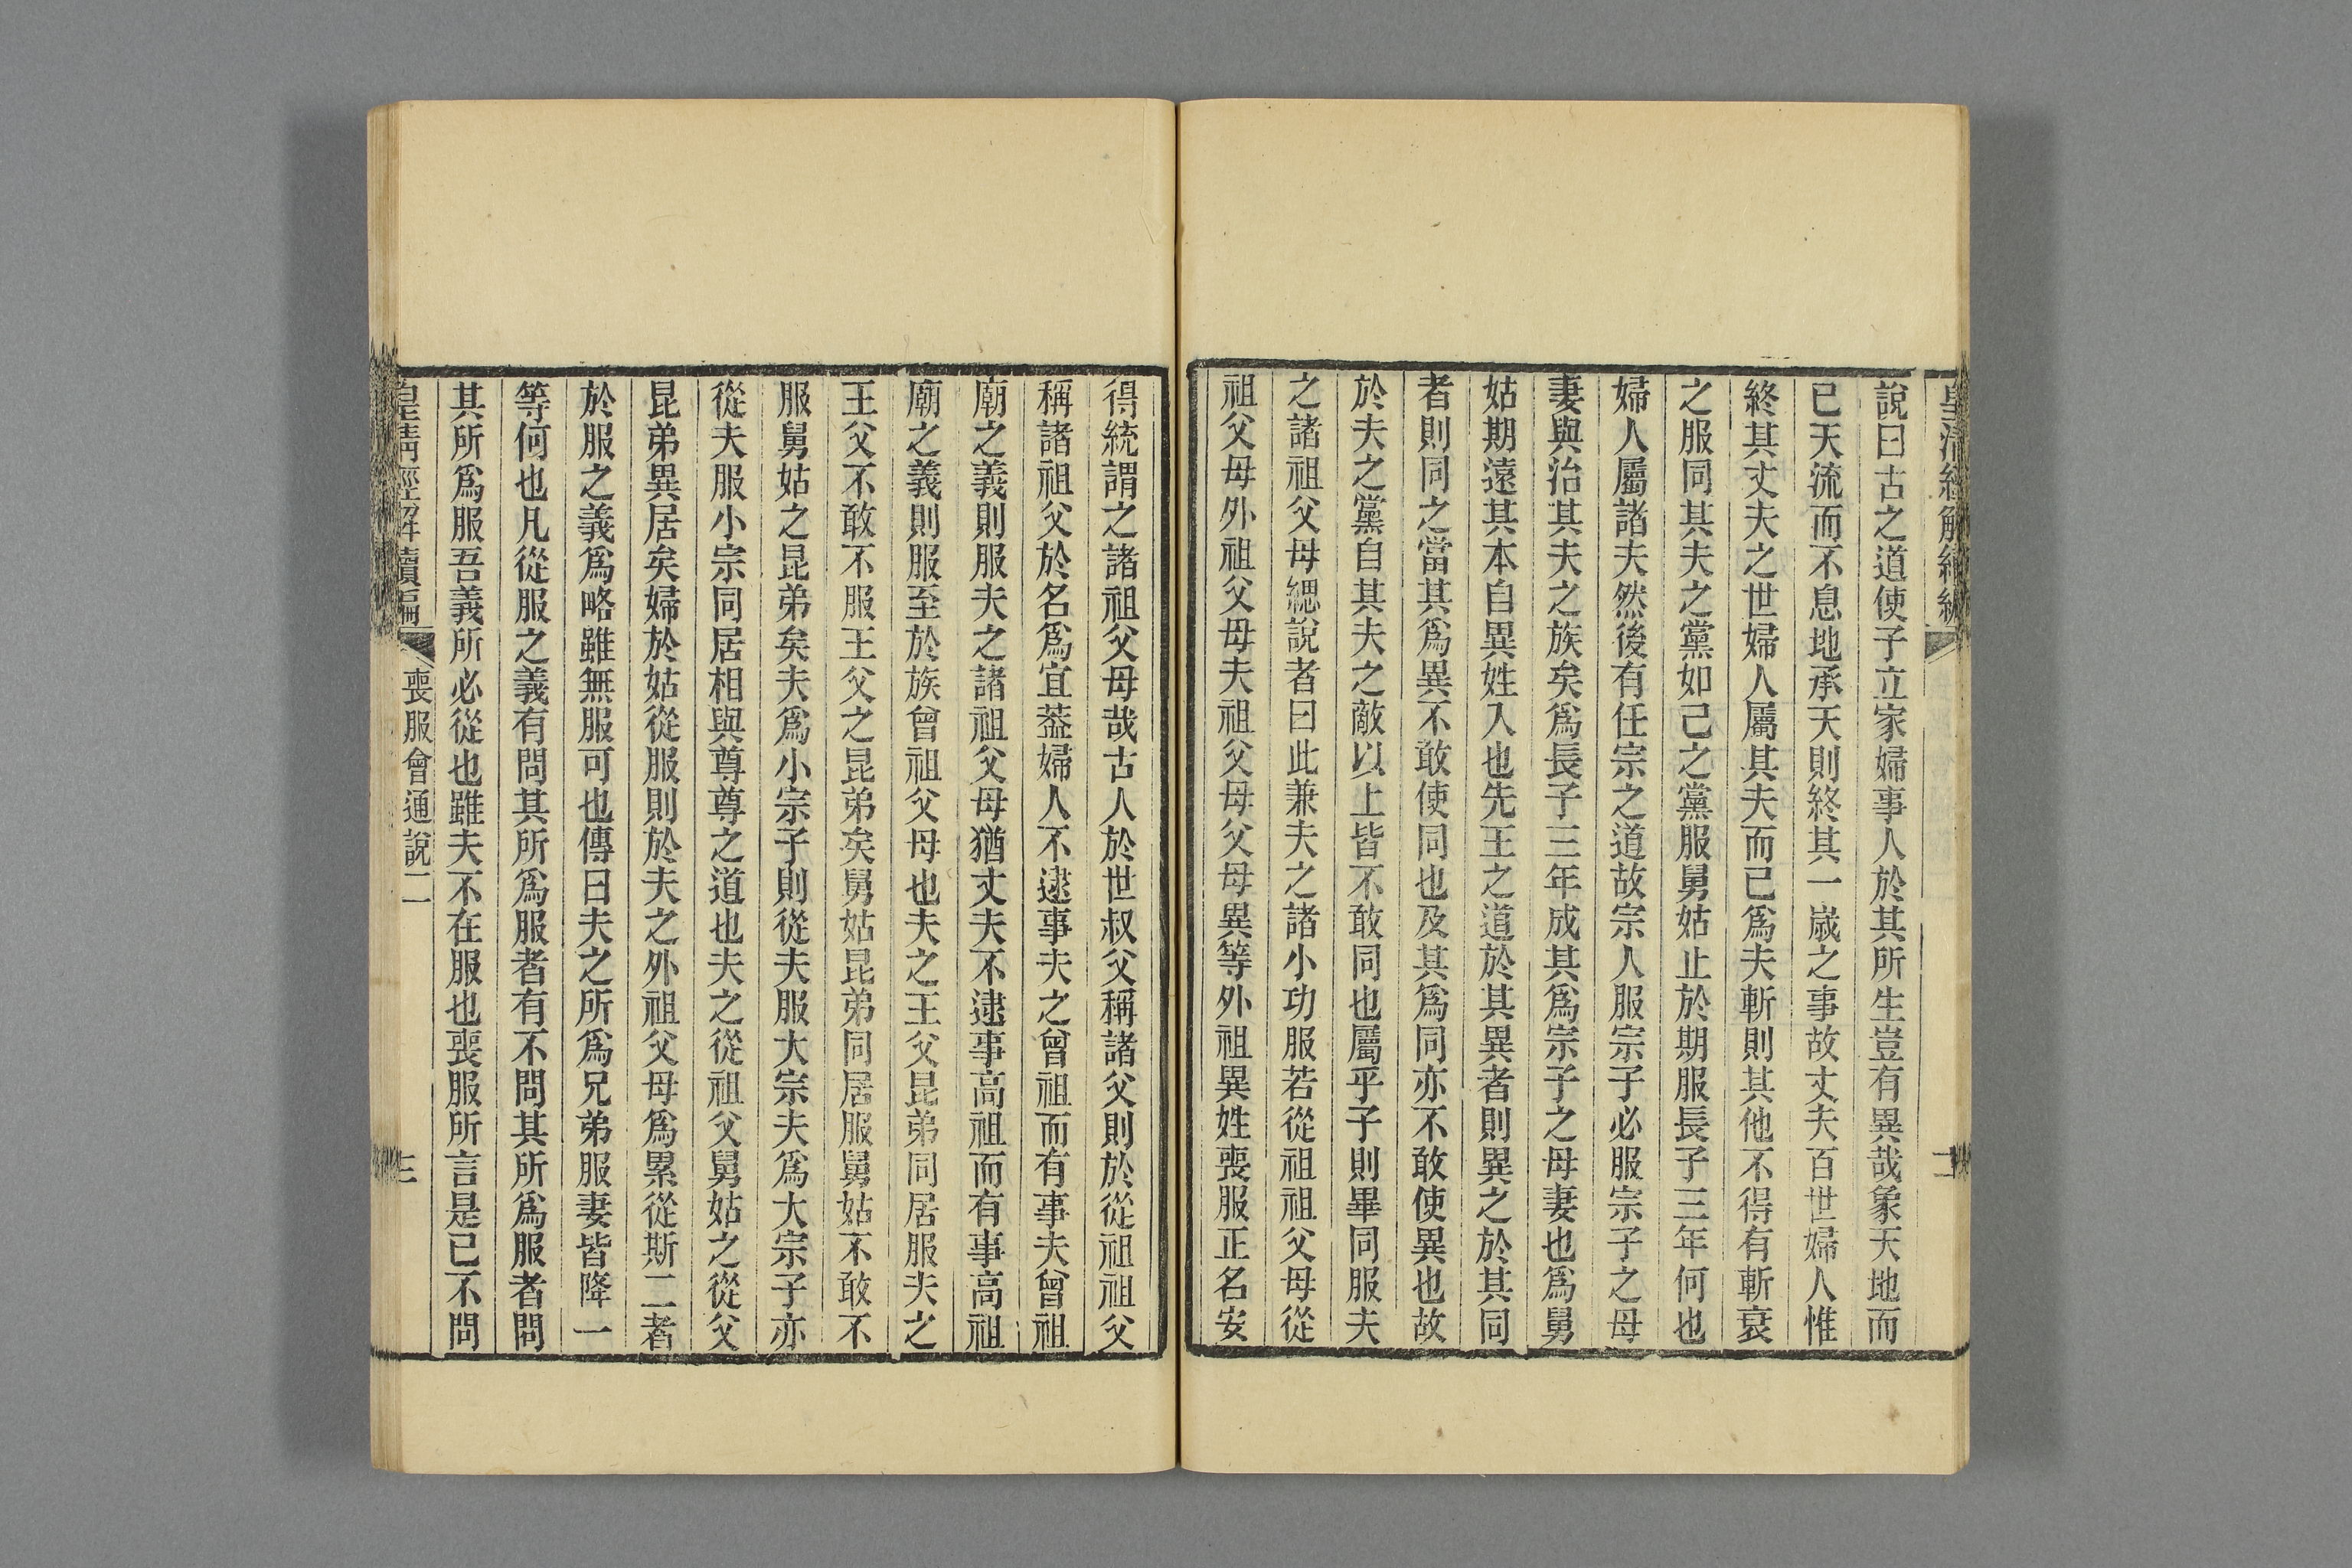 皇清經解續編
二
說曰古之道使子立家婦事人於其所生豈有異哉象天地而
已天流而不息地承天則終其一歲之事故丈夫百世婦人惟
終其丈夫之世婦人屬其夫而已爲夫斬則其他不得有斬衰
之服同其夫之黨如己之黨服舅姑止於期服長子三年何也
婦人屬諸夫然後有任宗之道故宗人服宗子必服宗子之母
妻與治其夫之族矣爲長子三年成其爲宗子之母妻也爲舅
姑期遠其本自異姓入也先王之道於其異者則異之於其同
者則同之當其爲異不敢使同也及其爲同亦不敢使異也故
於夫之黨自其夫之敵以上皆不敢同也屬乎子則畢同服夫
之諸祖父母緦說者曰此兼夫之諸小功服若從祖祖父母從
祖父母外祖父母夫祖父母父母異等外祖異姓喪服正名安
得統謂之諸祖父母哉古人於世叔父稱諸父則於從祖祖父
稱諸祖父於名爲宜葢婦人不逮事夫之曾祖而有事夫曾祖
廟之義則服夫之諸祖父母猶丈夫不逮事高祖而有事高祖
廟之義則服至於族曾祖父母也夫之王父昆弟同居服夫之
王父不敢不服王父之昆弟矣舅姑昆弟同居服舅姑不敢不
服舅姑之昆弟矣夫爲小宗子則從夫服大宗夫爲大宗子亦
從夫服小宗同居相與尊尊之道也夫之從祖父舅姑之從父
昆弟異居矣婦於姑從服則於夫之外祖父母爲累從斯二者
於服之義爲略雖無服可也傳曰夫之所爲兄弟服妻皆降一
等何也凡從服之義有問其所爲服者有不問其所爲服者問
其所爲服吾義所必從也雖夫不在服也喪服所言是已不問
皇清經解續編
喪服會通說二
三